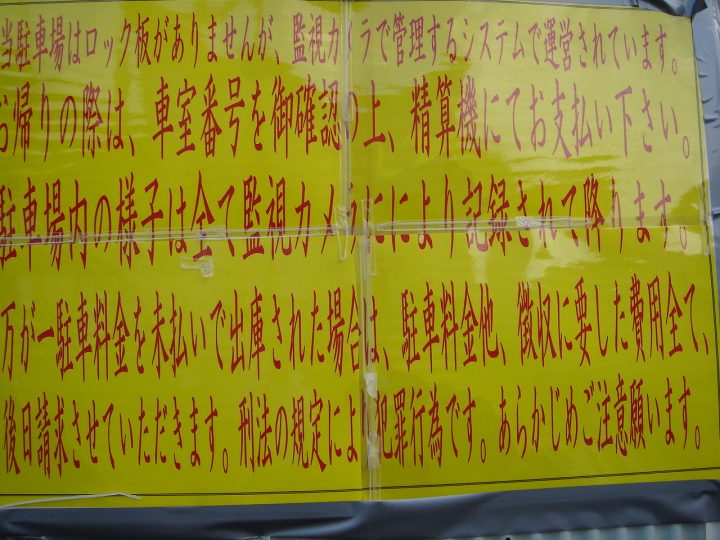 当駐車場はロック板がありませんが、監視カメラで管理するシステムで運営されています。
お帰りの際は、車室番号を御確認の上、精算機にてお支払い下さい。
駐車場内の様子は全て監視カメラにより記録されて降ります。
万が一駐車料金を未払いで出庫された場合は、駐車料金他、徴収に要した費用全て、
後日請求させていただきます。刑法の規定により犯罪行為です。あらかじめご注意願います。